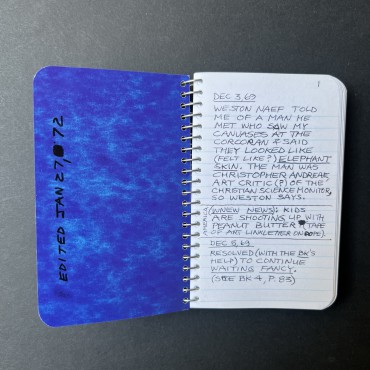 EDITED JAN 27, 72
1
DEC 3, 69
WESTON NAEF TOLD
ME OF A MAN HE
MET WHO SAW MY
CANVASES AT THE
CORCORAN & SAID
THEY LOOKED LIKE
(FELT LIKE?) ELEPHANT
SKIN. THE MAN WAS
CHRISTOPHER ANDREAE,
ART CRITIC (?) OF THE
CHRISTIAN SCIENCE MONITOR,
SO WESTON SAYS.
AMERICA
(WNEW NEWS): KIDS
ARE SHOOTING UP WITH
PEANUT BUTTER (TAPE
OF ART LINKLETTER ON DOPE).
DEC 5, 69.
RESOLVED (WITH THE BK'S
HELP) TO CONTINUE
WAITING FANCY.
(SEE BK 4, P. 83)